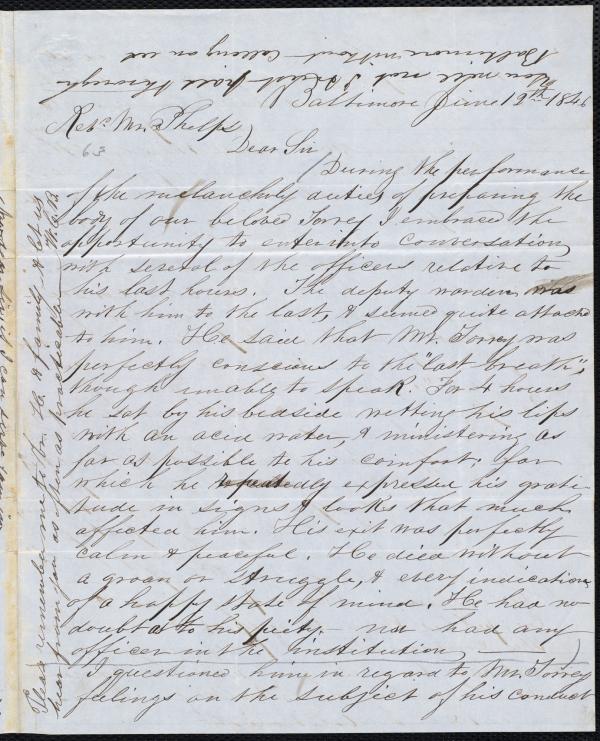 You will not I trust pass through
Baltimore without calling on us
Baltimore June 12th 1846
Revd. Mr. Phelps
63
Dear Sir
During the performance
of the melancholy duties of preparing the
body of our beloved Torrey I embrace the
opportunity to enter into conversation
with several of the officers relative to
his last hours. The deputy warden was
with him to the last, & seemed quite attachd
to him. He said that Mr. Torrey was
perfectly conscious to the "last breath",
though unable to speak. For 4 hours
he set by his bedside wetting his lips
with an acid water, & ministering as
far as possible to his comfort; for
which he repeatedly expressed his grati
tude in signs & looks that much
affected him. His exit was perfectly
calm & peaceful. He died without
a groan or struggle, & every indication
of a happy state of mind. He had no
doubt as to his piety. nor had any
officer in the institution
I questioned him in regard to Mr. Torrey
feelings on the subject of his conduct
Please remember me to Mr. & family & let us
hear from you as often as practicable